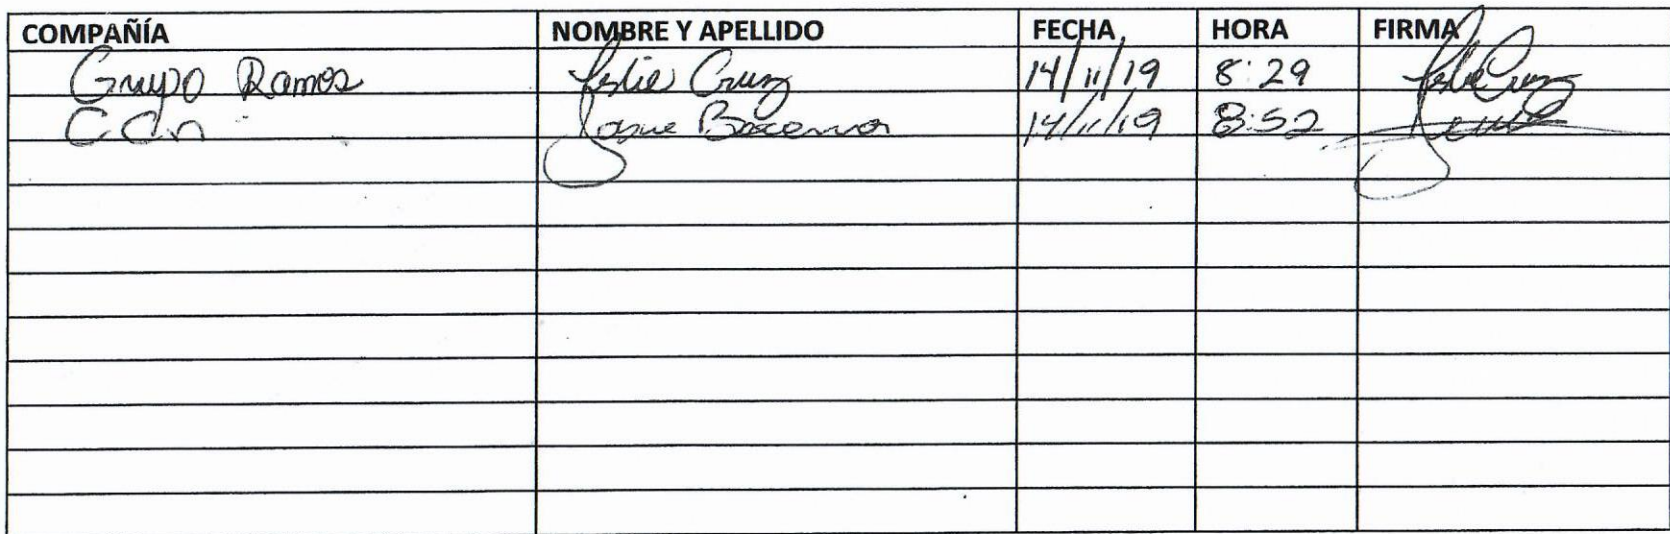 COMPAÑÍA NOMBRE Y APELLIDO FECHA HORA FIRMA
Grupo Ramos Leslie Cruz 14/11/19 8:29 Leslie Cruz
CCN Josue 14/11/19 8:52